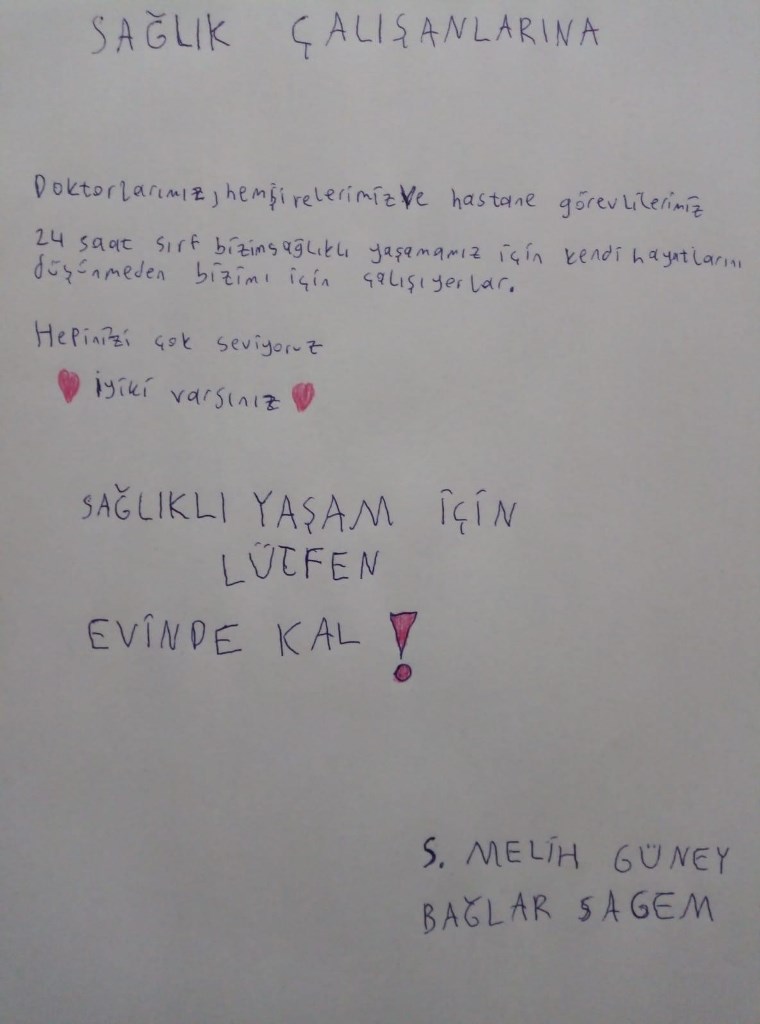 SAĞLIK ÇALIŞANLARINA
Doktorlarımız, hemşirelerimiz ve hastane görevlilerimiz
24 saat sırf bizim sağlıklı yaşamamız için kendi hayatlarını
düşünmeden bizimı için çalışıyerlar.
Hepinizi çok seviyoruz
İyiki varsınız
SAĞLIKLI YAŞAM İÇİN
LÜTFEN
EVİNDE KAL !
S. MELİH GÜNEY
BAĞLAR ŞAGEM